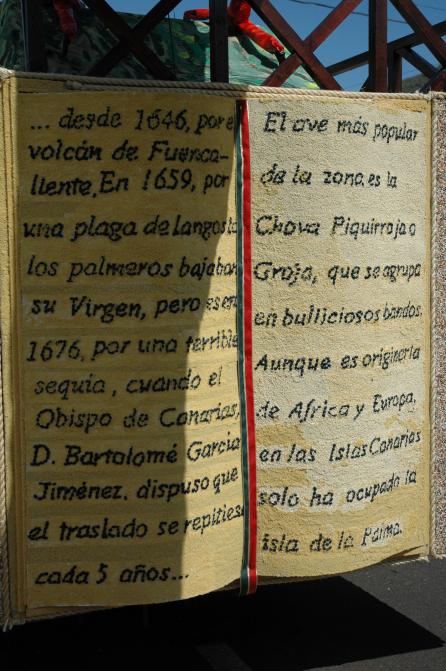 ... desde 1646, por el
volcán de Fuenca-
liente, En 1659, por
una plaga de langosta
los palmeros bajaban
su Virgen, pero es en
1676, por una terrible
sequia, cuando el
Obispo de Canarias,
D. Bartolomé Garcia
Jiménez, dispuso que
el traslado se repitiese
cada 5 años...
El ave más popular
de la zona es la
Chova Piquirroja o
Graja, que se agrupa
en bulliciosos bandos.
Aunque es originaria
de Africa y Europa,
en las Islas Canarias
solo ha ocupado la
isla de la Palma.